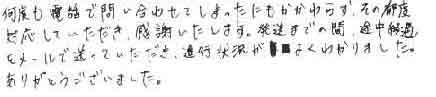 何度も電話で問い合わせてしまったにもかかわらず、その都度
対応していただき、感謝いたします。発送までの間、途中経過
をメールで送っていただき、進行状況がよくわかりました。
ありがとうございました。